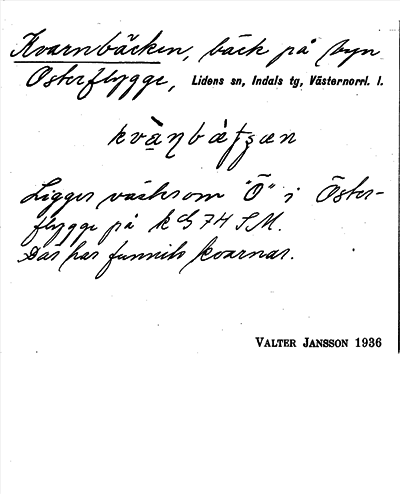 Kvarnbäcken, bäck på byn
Österflygge, Lidens sn, Indals tg, Västernorrl. l.
Ligger väster om "Ö" i Öster-
flygge på k 74 SM.
Där har funnits kvarnar.
VALTER JANSSON 1936